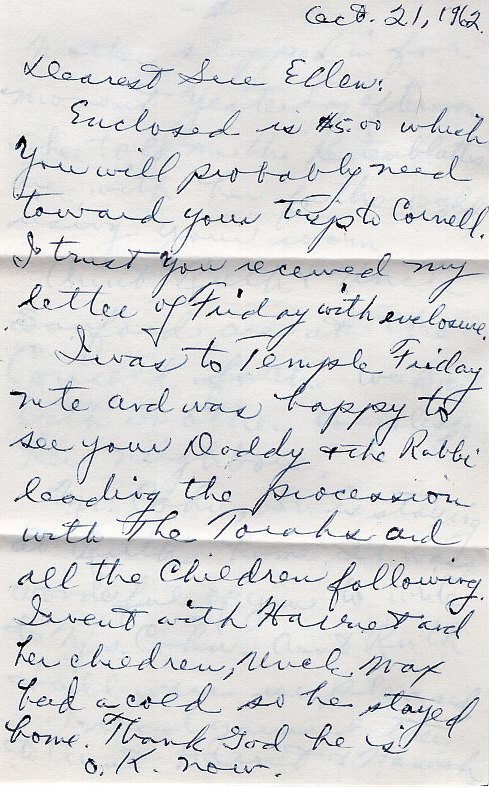 Oct. 21, 1962.
Dearest Sue Ellen:
Enclosed is $5.00 which
you will probably need
toward your trip to Cornell.
I trust you received my
letter of Friday with enclosure.
I was to Temple Friday
nite and was happy to
see your Daddy & the Rabbi
leading the procession
with the Torahs and
all the children following.
I went with Harriet and
her children, Uncle Max
had a cold so he stayed
home. Thank God he is
O.K. now.